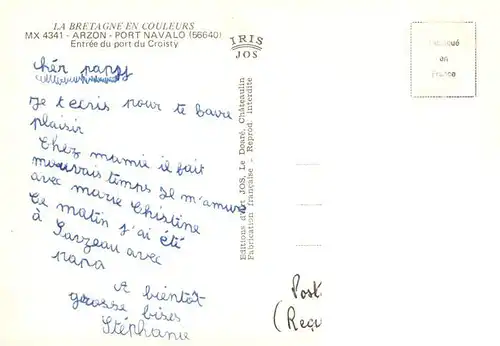 LA BRETAGNE EN COULEURS
MX 4341 - ARZON - PORT NAVALO (56640)
Entrée du port du Croisty
IRIS
JOS
Imprimé
en
France
Editions d'art JOS, Le Doaré, Châteaulin
Fabrication française - Reprod. interdite
chér papy
Je t ecris pour te
plaisir
Chez mamie il fait
mauvais temps Je m'amuse
avec marie Christine
Ce matin j'ai été
à Sarzeau avec
papa
A bientôt
grosse bises
Stéphanie
Post
(Reçu